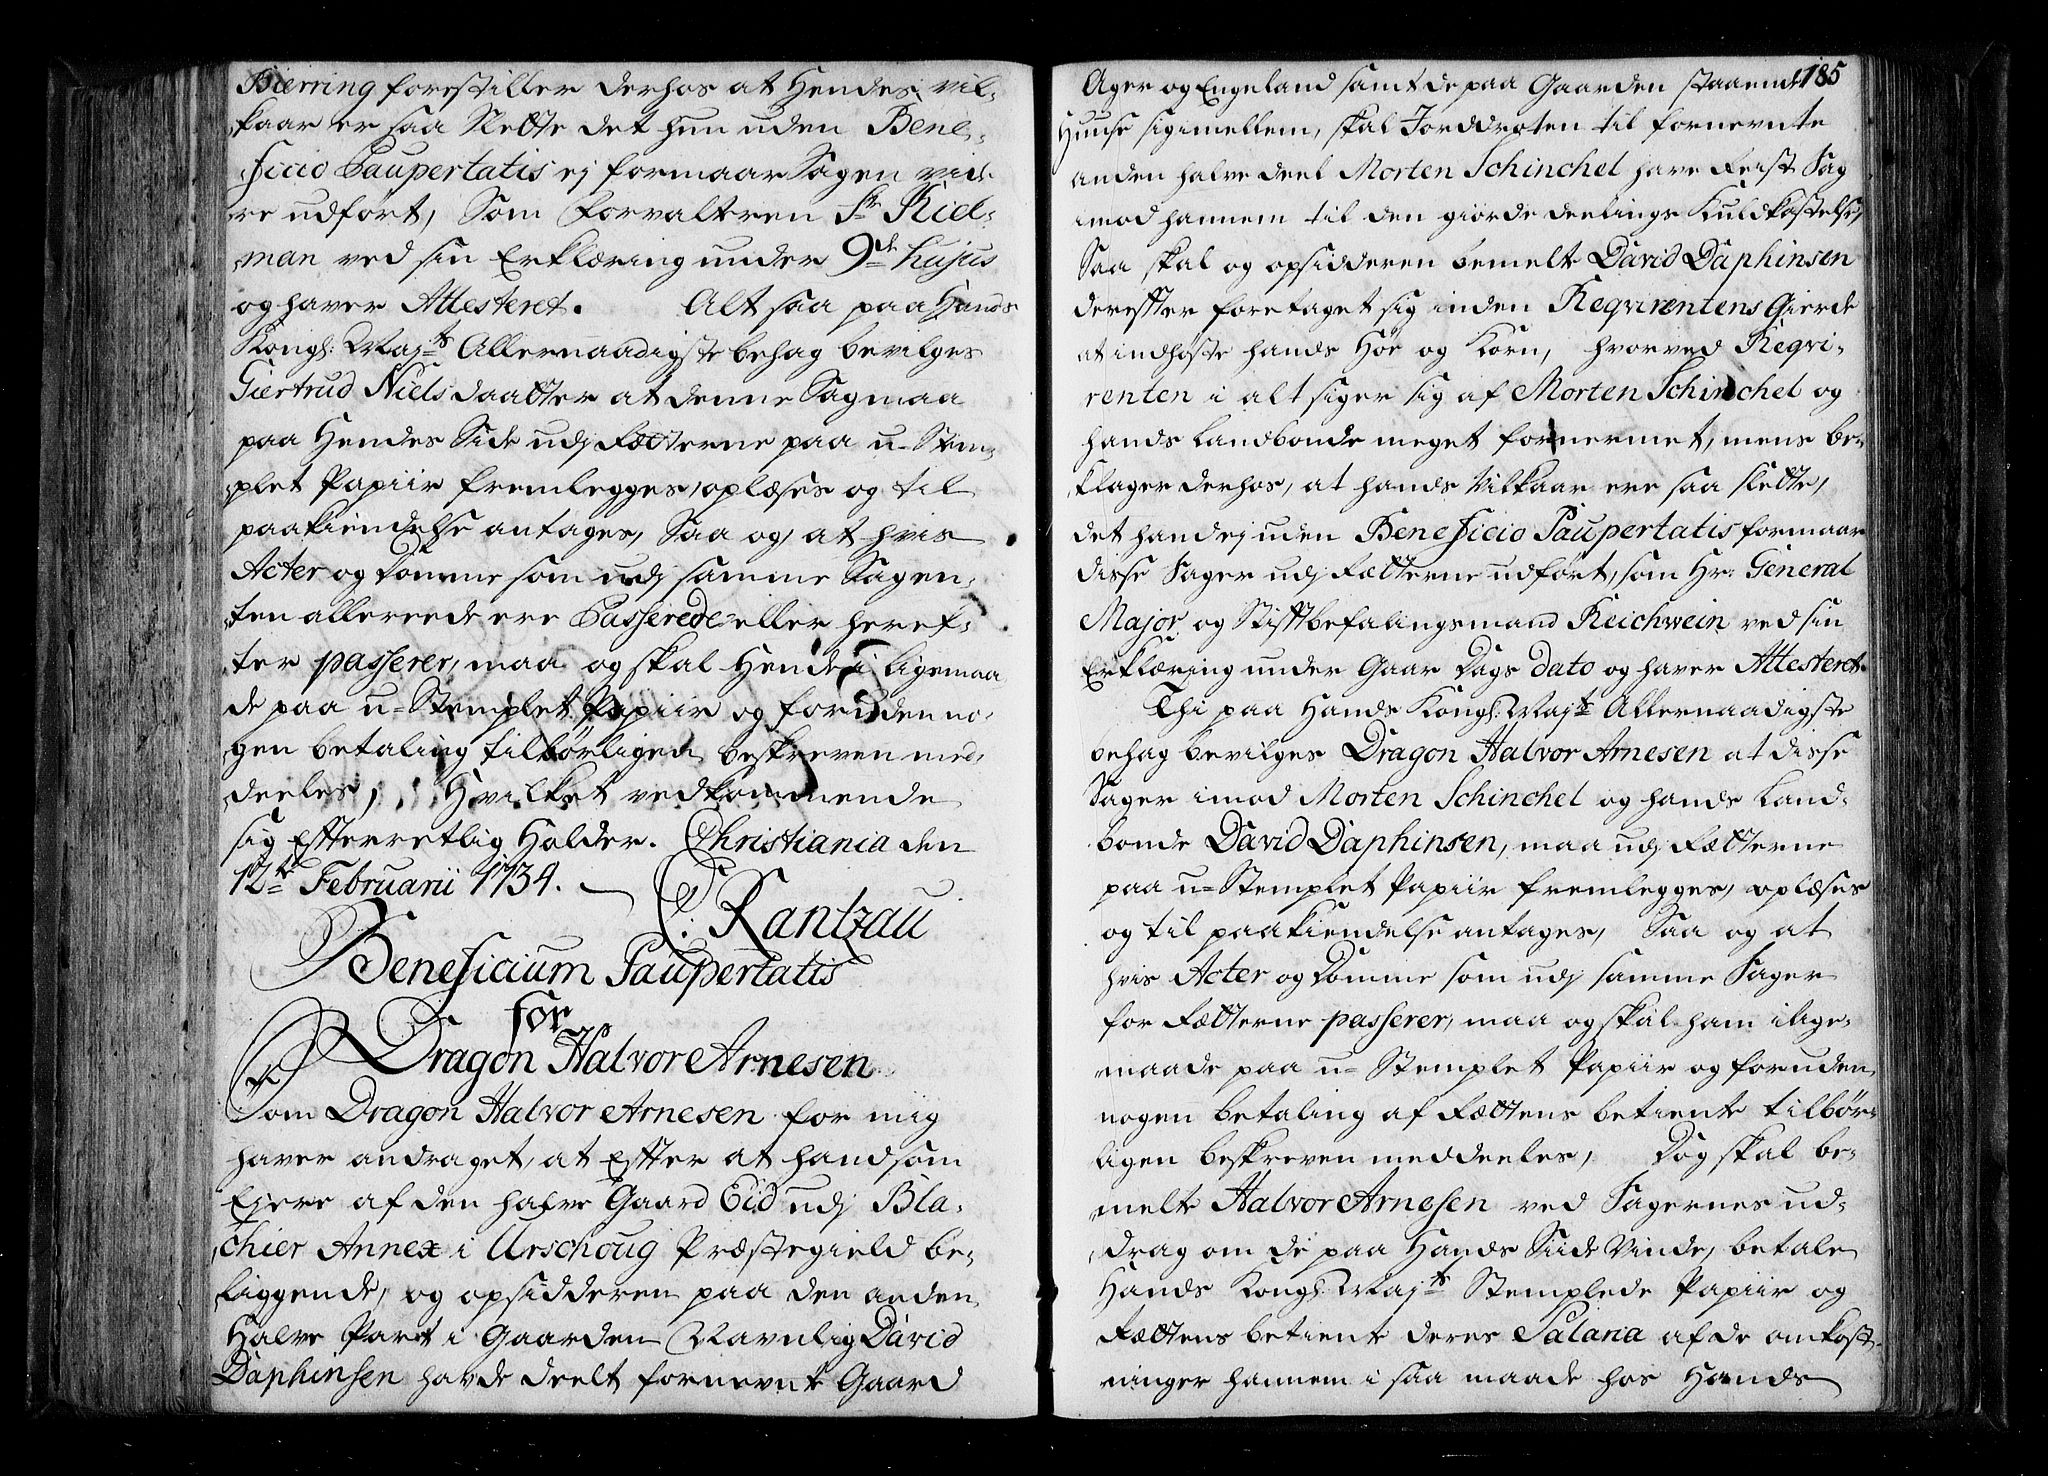 Bierring forestiller derhos at Hendes vil-
kaar er saa slette det hun uden Bene-
ficio Paupertatis ej formaar Sagen vide-
re udført, Som Forvalteren Sr Kiel-
man ved sin Erklæring under 9de hujus
og haver Attesteret. Alt saa paa Hands
Kongl: Mayts Allernaadigste behag bevilges
Giertrud Niels daatter at denne Sag maa
paa Hendes Side udj Rætterne paa u-Stem-
plet Papiir fremlegges, oplæses og til
paakiendelse antages, Saa og, at hvis
Acter og Domme som udj samme Sag en-
ten allereede ere Passerede eller heref-
ter passerer, maa og skal Hende i ligemaa
de paa u-Stemplet Papiir og foruden no-
gen betaling tilbørligen beskreven med-
deeles, Hvilket vedkommende
sig Effterretlig Holder. Christiania den
12te Februarii 1734.
C: Rantzau
Beneficium Paupertatis
for
Dragon Halvor Arnesen
Som Dragon Halvor Arnesen for mig
haver andraget, at Effter at hand som
Ejere af den halve Gaard Eid udj Bla-
chier Annex i Urschoug Præstegield be-
liggende, og opsidderen paa den anden
Halve Part i Gaarden Navnlig David
Daphinsen havde deelt fornevnte Gaard
185
Ager og Engeland samt de paa Gaarden staaende
Huuse sig imellem, skal Jorddrotten til fornevnte
anden halve deel Morten Schinchel have Reist Sag
imod hannem til den giorde deelings Kuldkastelse,
Saa skal og opsidderen bemelte David Daphinsen
dereffter foretaget sig inden Reqvirentens Gierde
at indhøste hands Høe og Korn, hvorved Reqvi-
renten i alt siger sig af Morten Schinchel og
hands Landbonde meget fornermet, mens be-
klager derhos, at hands Vilkaar ere saa slette,
det hand ej uden Beneficio Paupertatis formaar
disse Sager udj Rætterne udført, som Hr: General
Major og Stifftbefalingsmand Reichwein ved sin
Erklæring under Gaar Dags dato og haver Attesteret.
Thi paa Hands Kongl: Mayts Allernaadigste
behag bevilges Dragon Halvor Arnesen at disse
Sager imod Morten Schinchel og hands Land-
bonde David Daphinsen, maa udj Rætterne
paa u-Stemplet Papiir fremlegges, oplæses
og til paakiendelse antages, Saa og at
hvis Acter og Domme som udj samme Sager
for Rætterne passerer, maa og skal ham i lige-
maade paa u-Stemplet Papiir og foruden
nogen betaling af Rættens betiente tilbør-
ligen beskreven meddeeles, Dog skal be-
melte Halvor Arnesen ved Sagernes ud-
drag om de paa Hands Siide Vinde, betale
Hands Kongl: Mayts Stemplede Papiir og
Rættens betiente deres Salaria af de omkost-
ninger hannem i saa maade hos Hands